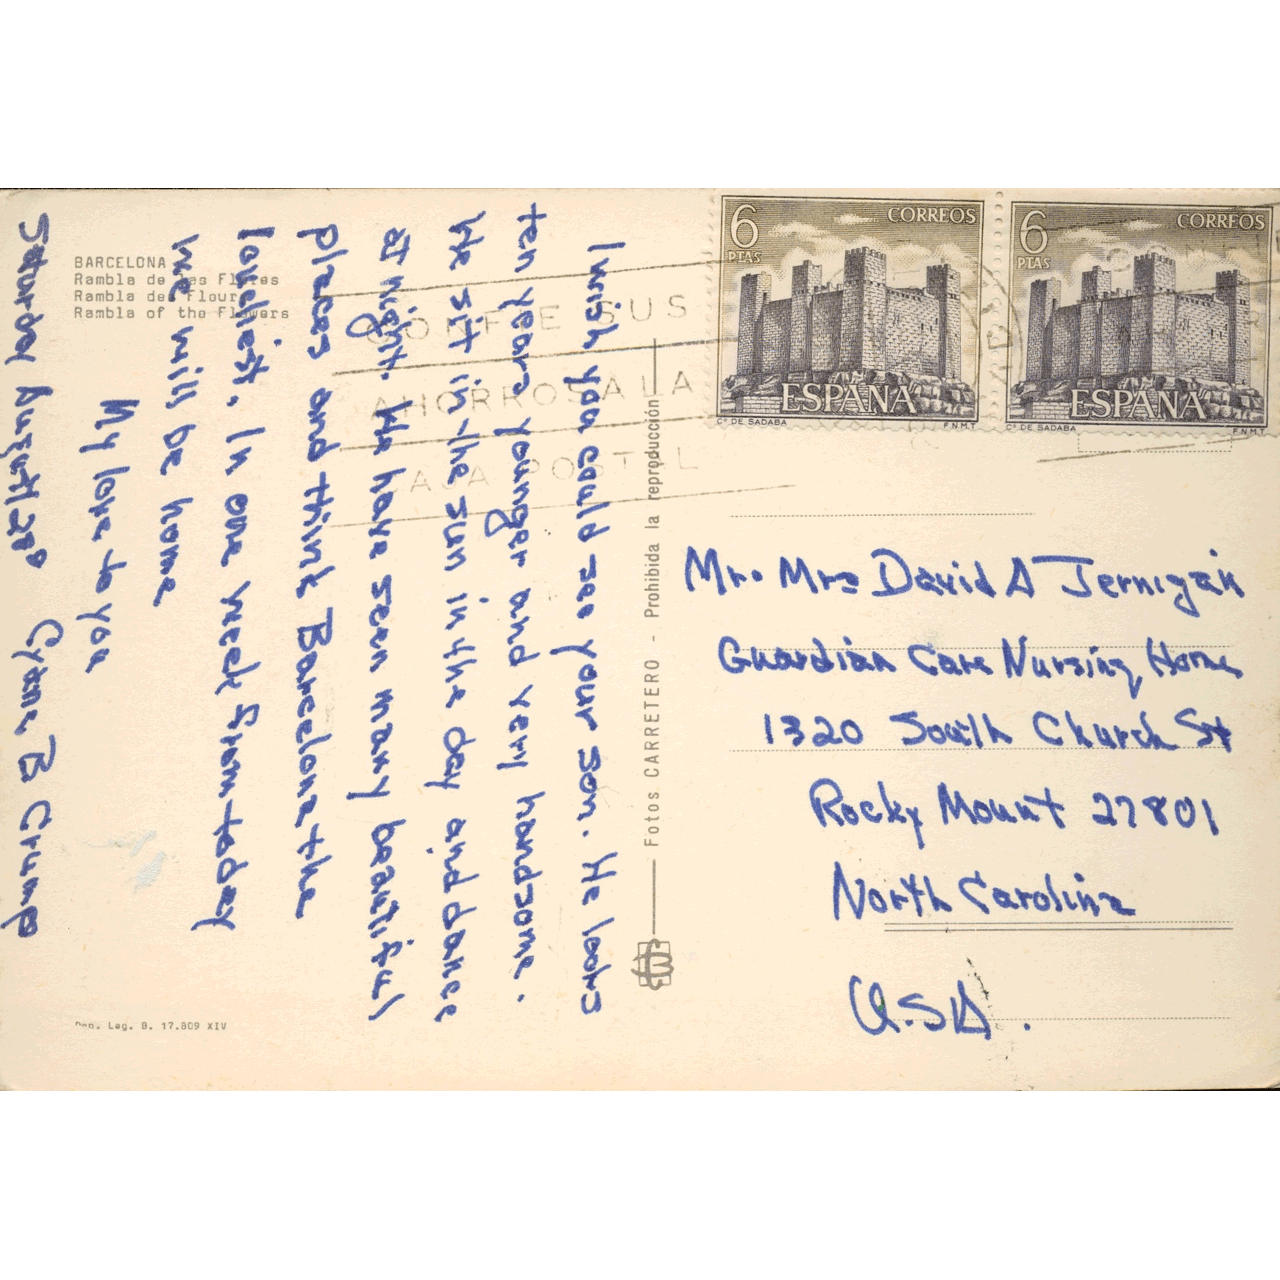 BARCELONA
Rambla de las Flores
Rambla des Flours
Rambla of the Flowers
I wish you could see your son. He looks
ten years younger and very handsome.
We sit in the sun in the day and dance
at night. We have seen many beautiful
places and think Barcelona the
loveliest. In one week from today
we will be home
My love to you
Saturday August 20
B Crump
Dep. Leg. B. 17.809 XIV
Fotos CARRETERO - Prohibida la reproducción
CONFIE SUS
AHORROS A LA
CAJA POSTAL
6 PTAS
CORREOS
ESPAÑA
Cº DE SADABA
F.N.M.T
6 PTAS
CORREOS
ESPAÑA
Cº DE SADABA
F.N.M.T
Mr. Mrs David A Jernigan
Guardian Care Nursing Home
1320 South Church St
Rocky Mount 27801
North Carolina
U.S.A.